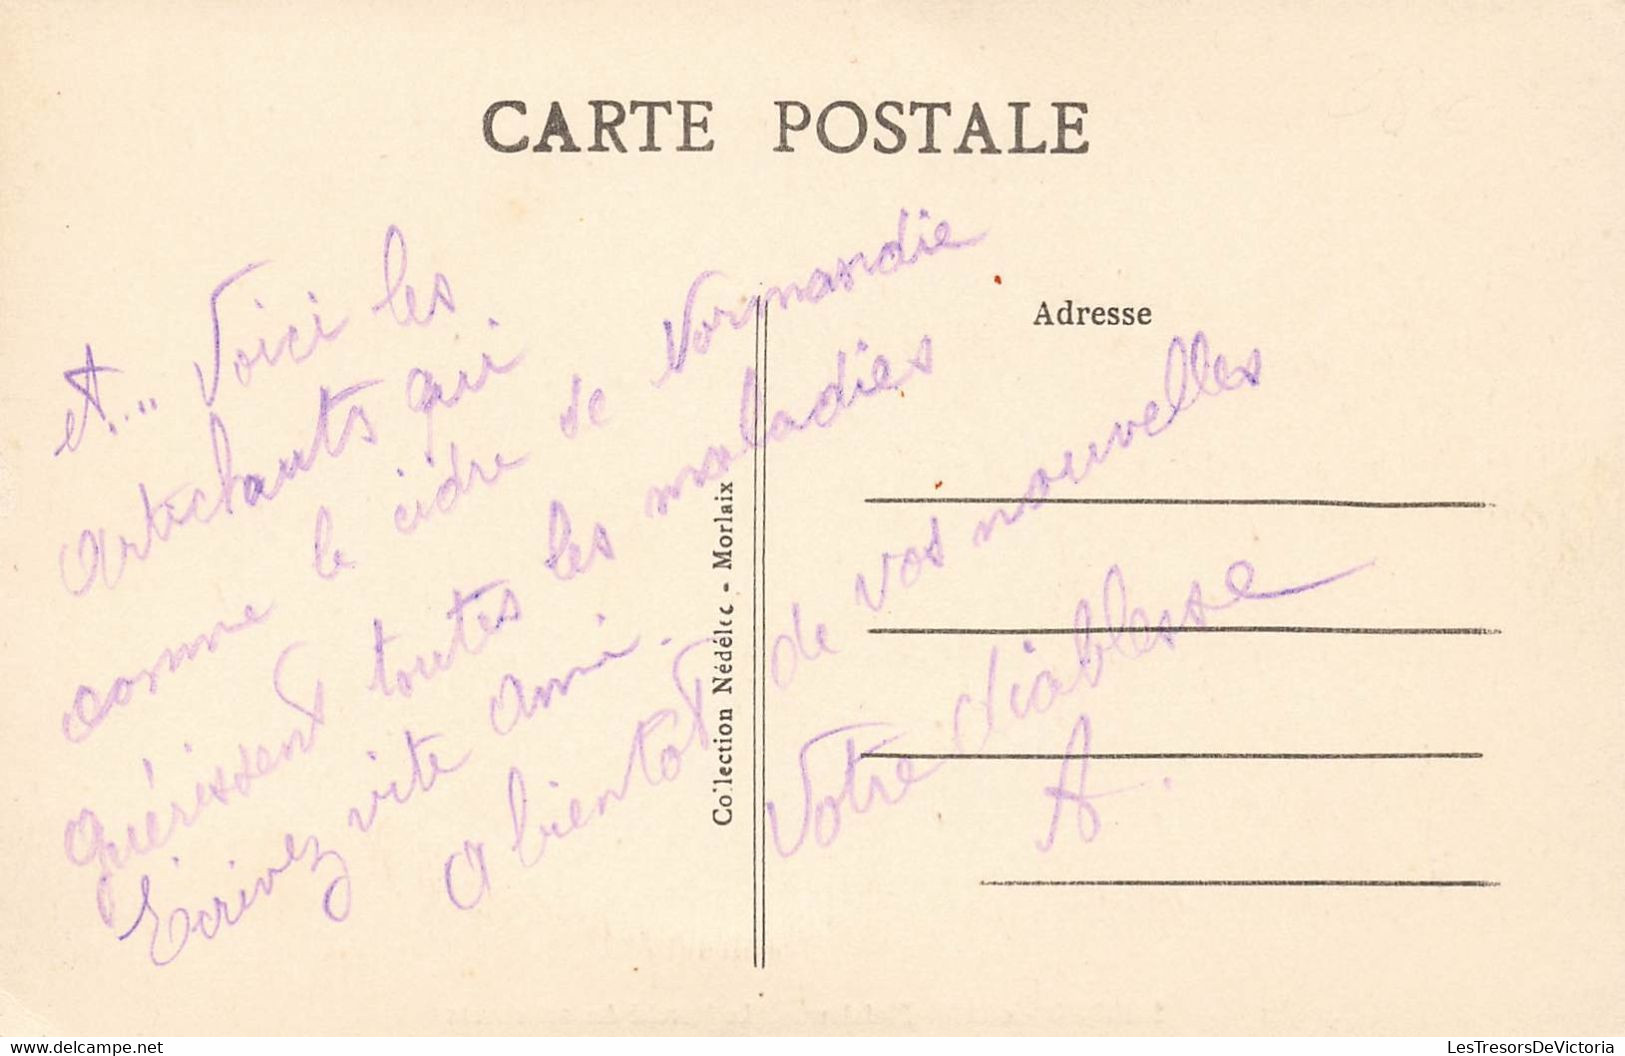 CARTE POSTALE
et... Voici les
artichauts qui
comme le cidre de Normandie
guérissent toutes les maladies
Écrivez vite ami.
A bientôt de vos nouvelles
Votre diablesse
A.
Collection Nédélec - Morlaix
Adresse
delcampe.net
LesTresorsDeVictoria